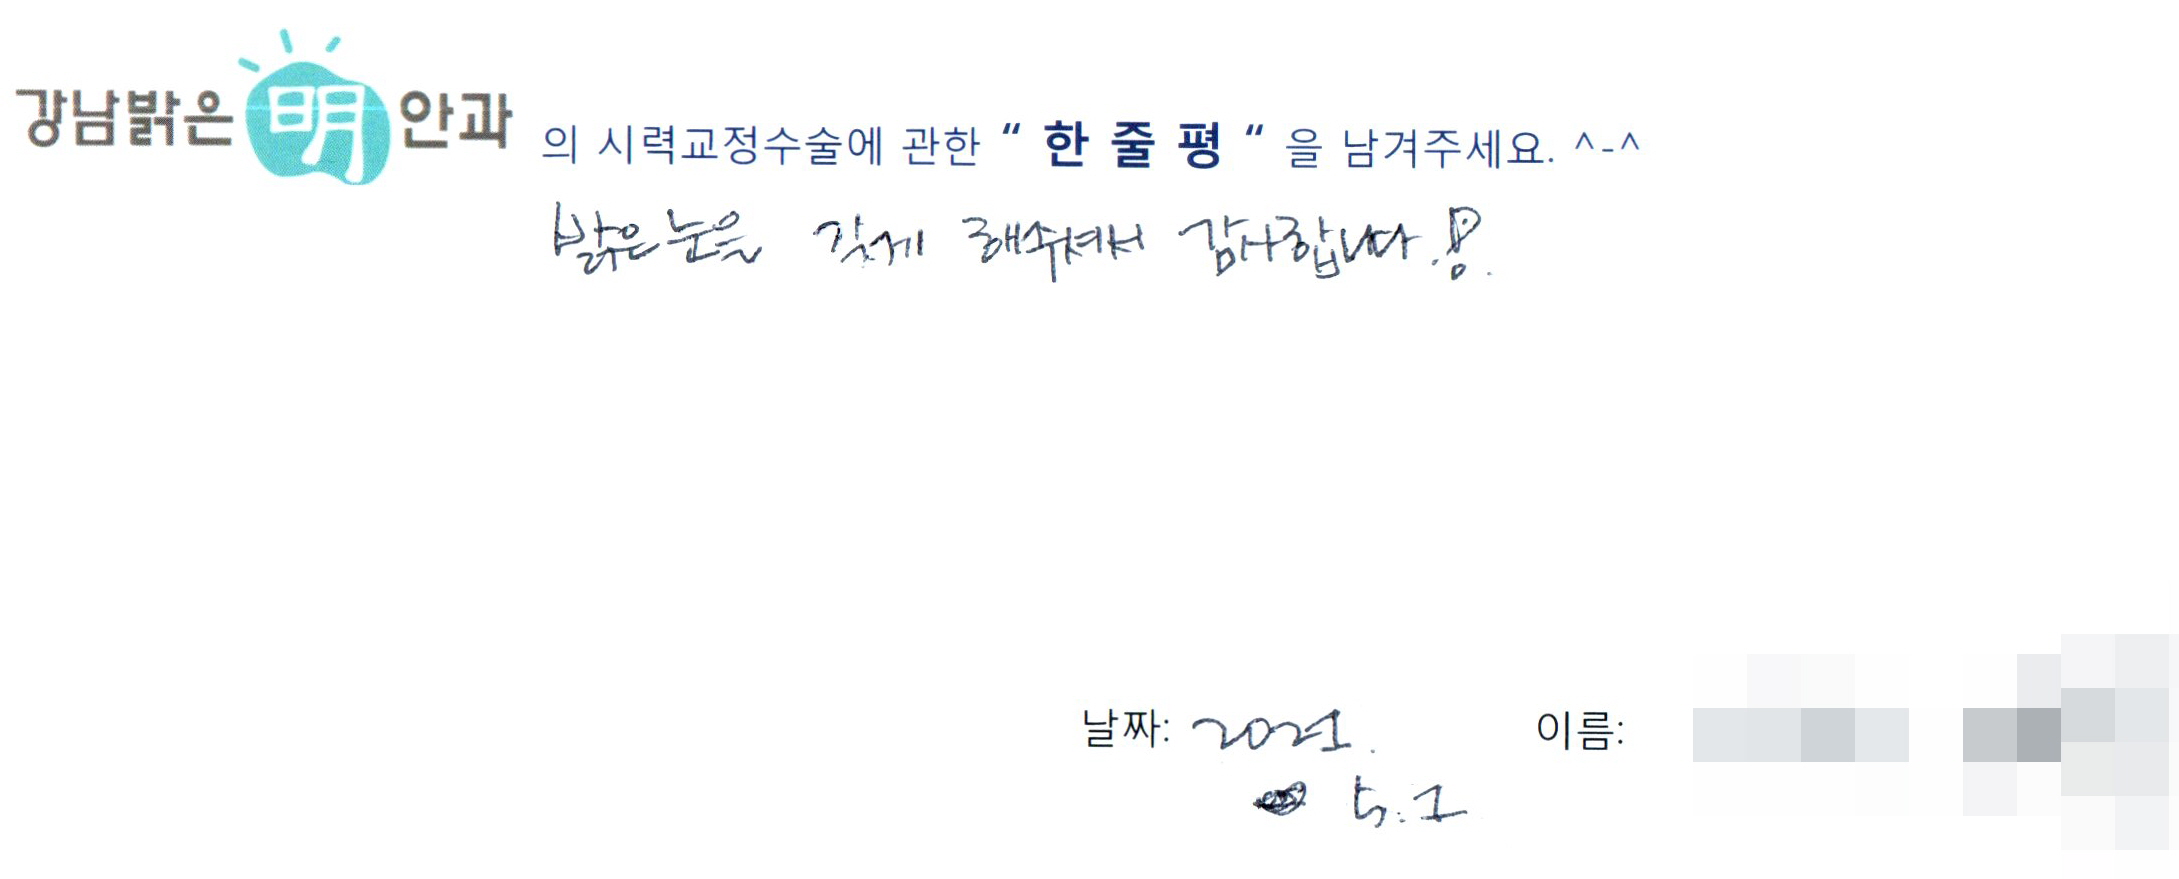 강남밝은 明 안과 의 시력교정수술에 관한 “ 한 줄 평 “ 을 남겨주세요. ^-^
밝은눈을 갖게 해주셔서 감사합니다.!
날짜: 2021. 이름:
5.1